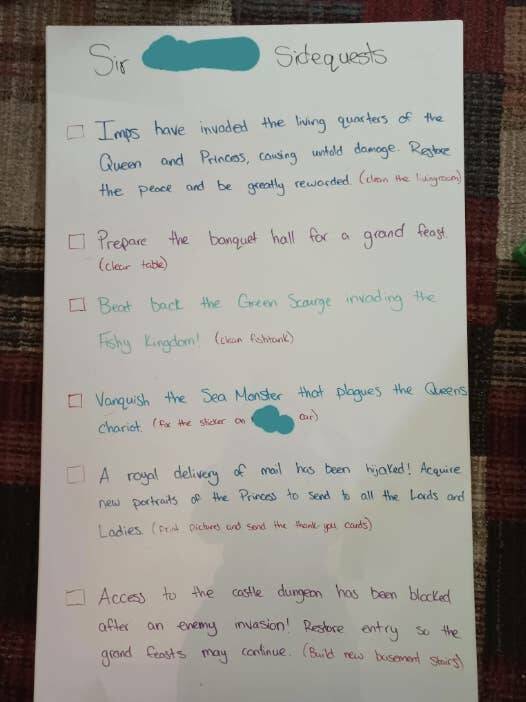 Sir Sidequests
Imps have invaded the living quarters of the
Queen and Princess, causing untold damage. Restore
the peace and be greatly rewarded. (clean the livingroom)
Prepare the banquet hall for a grand feast.
(clear table)
Beat back the Green Scourge invading the
Fishy Kingdom! (clean fishtank)
Vanquish the Sea Monster that plagues the Queens
chariot. (fix the sticker on car)
A royal delivery of mail has been hijaked! Acquire
new portraits of the Princess to send to all the Lords and
Ladies. (Print pictures and send the thank you cards)
Access to the castle dungeon has been blocked
after an enemy invasion! Restore entry so the
grand feasts may continue. (Build new basement stairs)